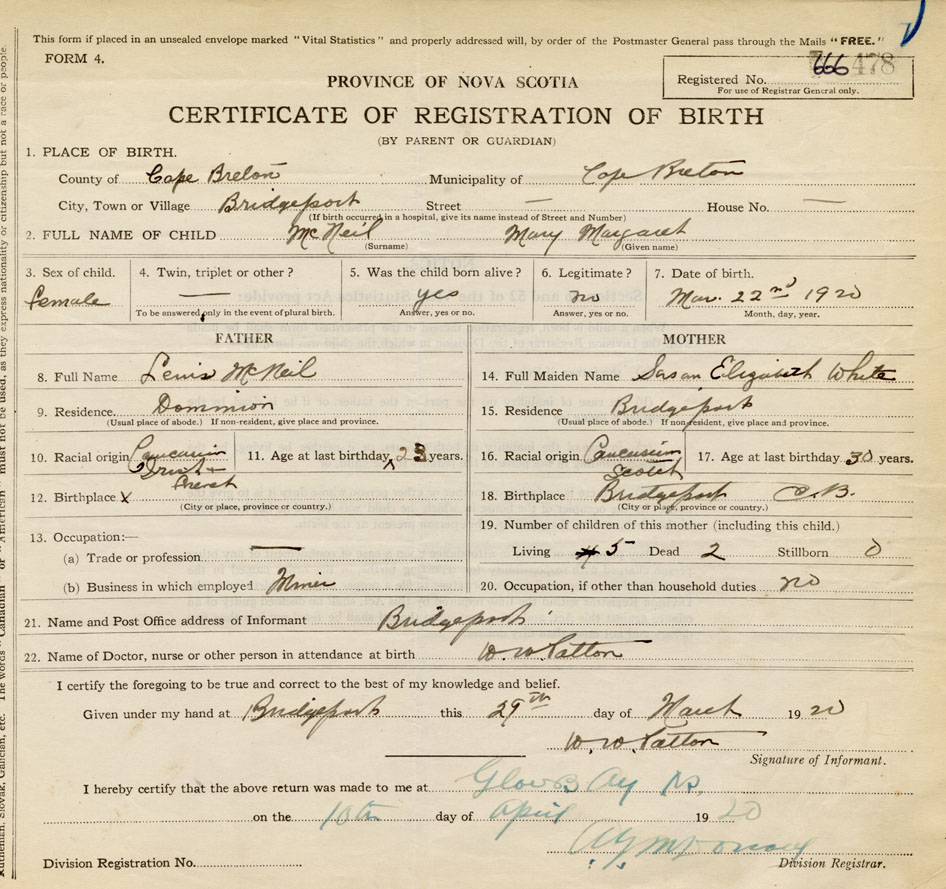 This form if placed in an unsealed envelope marked "Vital Statistics" and properly addressed will, by order of the Postmaster General pass through the Mails "FREE."
FORM 4.
478
PROVINCE OF NOVA SCOTIA
Registered No.
For use of Registrar General only.
CERTIFICATE OF REGISTRATION OF BIRTH
(BY PARENT OR GUARDIAN)
1. PLACE OF BIRTH.
County of Cape Breton Municipality of Cape Breton
City, Town or Village Bridgeport Street — House No. —
(If birth occurred in a hospital, give its name instead of Street and Number)
2. FULL NAME OF CHILD McNeil Mary Margaret
(Surname) (Given name)
3. Sex of child. 4. Twin, triplet or other? 5. Was the child born alive? 6. Legitimate? 7. Date of birth.
female — yes no Mar. 22nd 1920
To be answered only in the event of plural birth. Answer, yes or no. Answer, yes or no. Month, day, year.
FATHER MOTHER
8. Full Name Lewis McNeil 14. Full Maiden Name Susan Elizabeth White
9. Residence. Dominion 15. Residence Bridgeport
(Usual place of abode.) If non-resident, give place and province. (Usual place of abode.) If non-resident, give place and province.
10. Racial origin Caucasian 11. Age at last birthday 23 years. 16. Racial origin Caucasian Scotch 17. Age at last birthday 30 years.
12. Birthplace x 18. Birthplace Bridgeport C.B.
(City or place, province or country.) (City or place, province or country.)
13. Occupation:— 19. Number of children of this mother (including this child.)
(a) Trade or profession — Living 5 Dead 2 Stillborn 0
(b) Business in which employed Miner 20. Occupation, if other than household duties no
21. Name and Post Office address of Informant Bridgeport
22. Name of Doctor, nurse or other person in attendance at birth W. W. Patton
I certify the foregoing to be true and correct to the best of my knowledge and belief.
Given under my hand at Bridgeport this 29th day of March 1920
W. W. Patton
Signature of Informant.
I hereby certify that the above return was made to me at Glace Bay NS.
on the 10th day of April 1920
Division Registration No. Division Registrar.